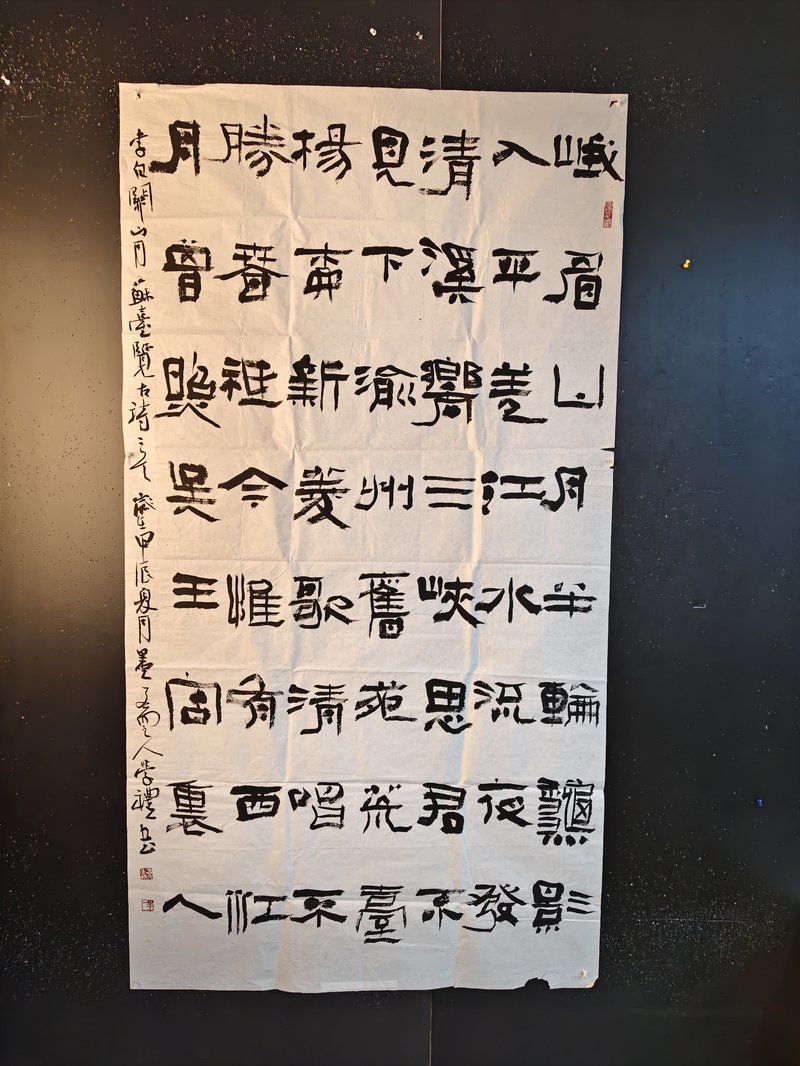 峨眉山月半輪龝影
入平羌江水流夜發
清溪嚮三峽思君不
見下渝州舊苑荒臺
楊柳新菱歌清唱不
勝春祗今惟有西江
月曾照吳王宫裏人
李白關山月 蘇臺覽古詩二首 歲在甲辰夏月墨 人學禮書